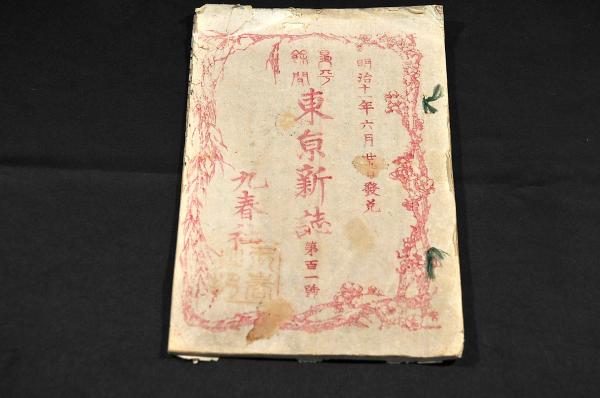 明治十一年六月廿日發兌
東京新誌
第百一號
九春社